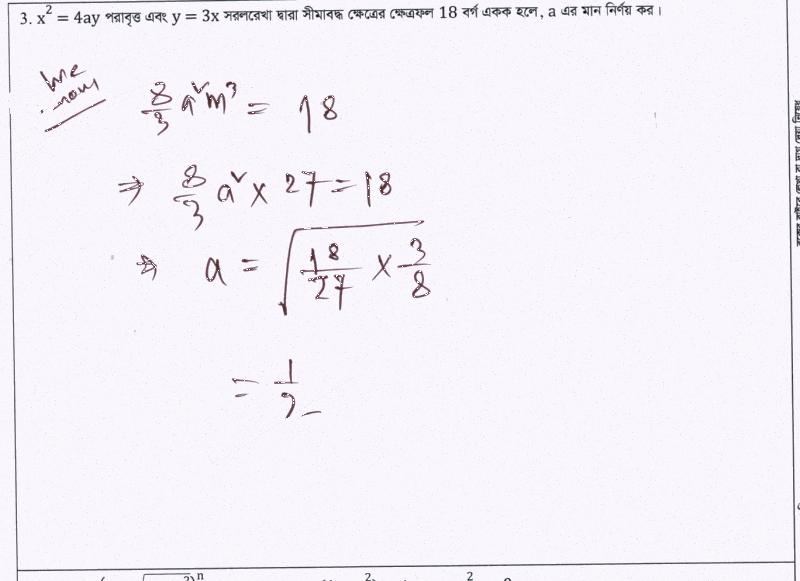 3. x² = 4ay পরাবৃত্ত এবং y = 3x সরলরেখা দ্বারা সীমাবদ্ধ ক্ষেত্রের ক্ষেত্রফল 18 বর্গ একক হলে, a এর মান নির্ণয় কর।
We know
8/3 a²m³ = 18
⇒ 8/3 a² × 27 = 18
⇒ a = √(18/27 × 3/8)
= 1/2